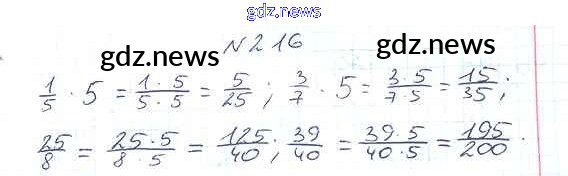 gdz.news
№216
gdz.news gdz.news
1/5 · 5 = 1 · 5/5 · 5 = 5/25; 3/7 · 5 = 3 · 5/7 · 5 = 15/35;
25/8 = 25 · 5/8 · 5 = 125/40; 39/40 = 39 · 5/40 · 5 = 195/200.